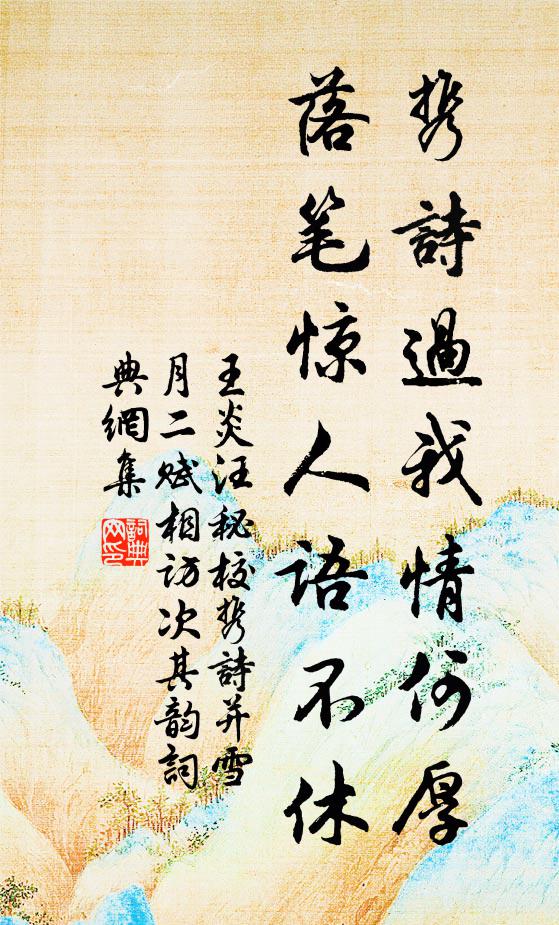 携詩過我情何厚
落笔惊人语不休
王炎汪秘校携詩并雪
月二赋相访次其韵詞
典網集
詞典
网印